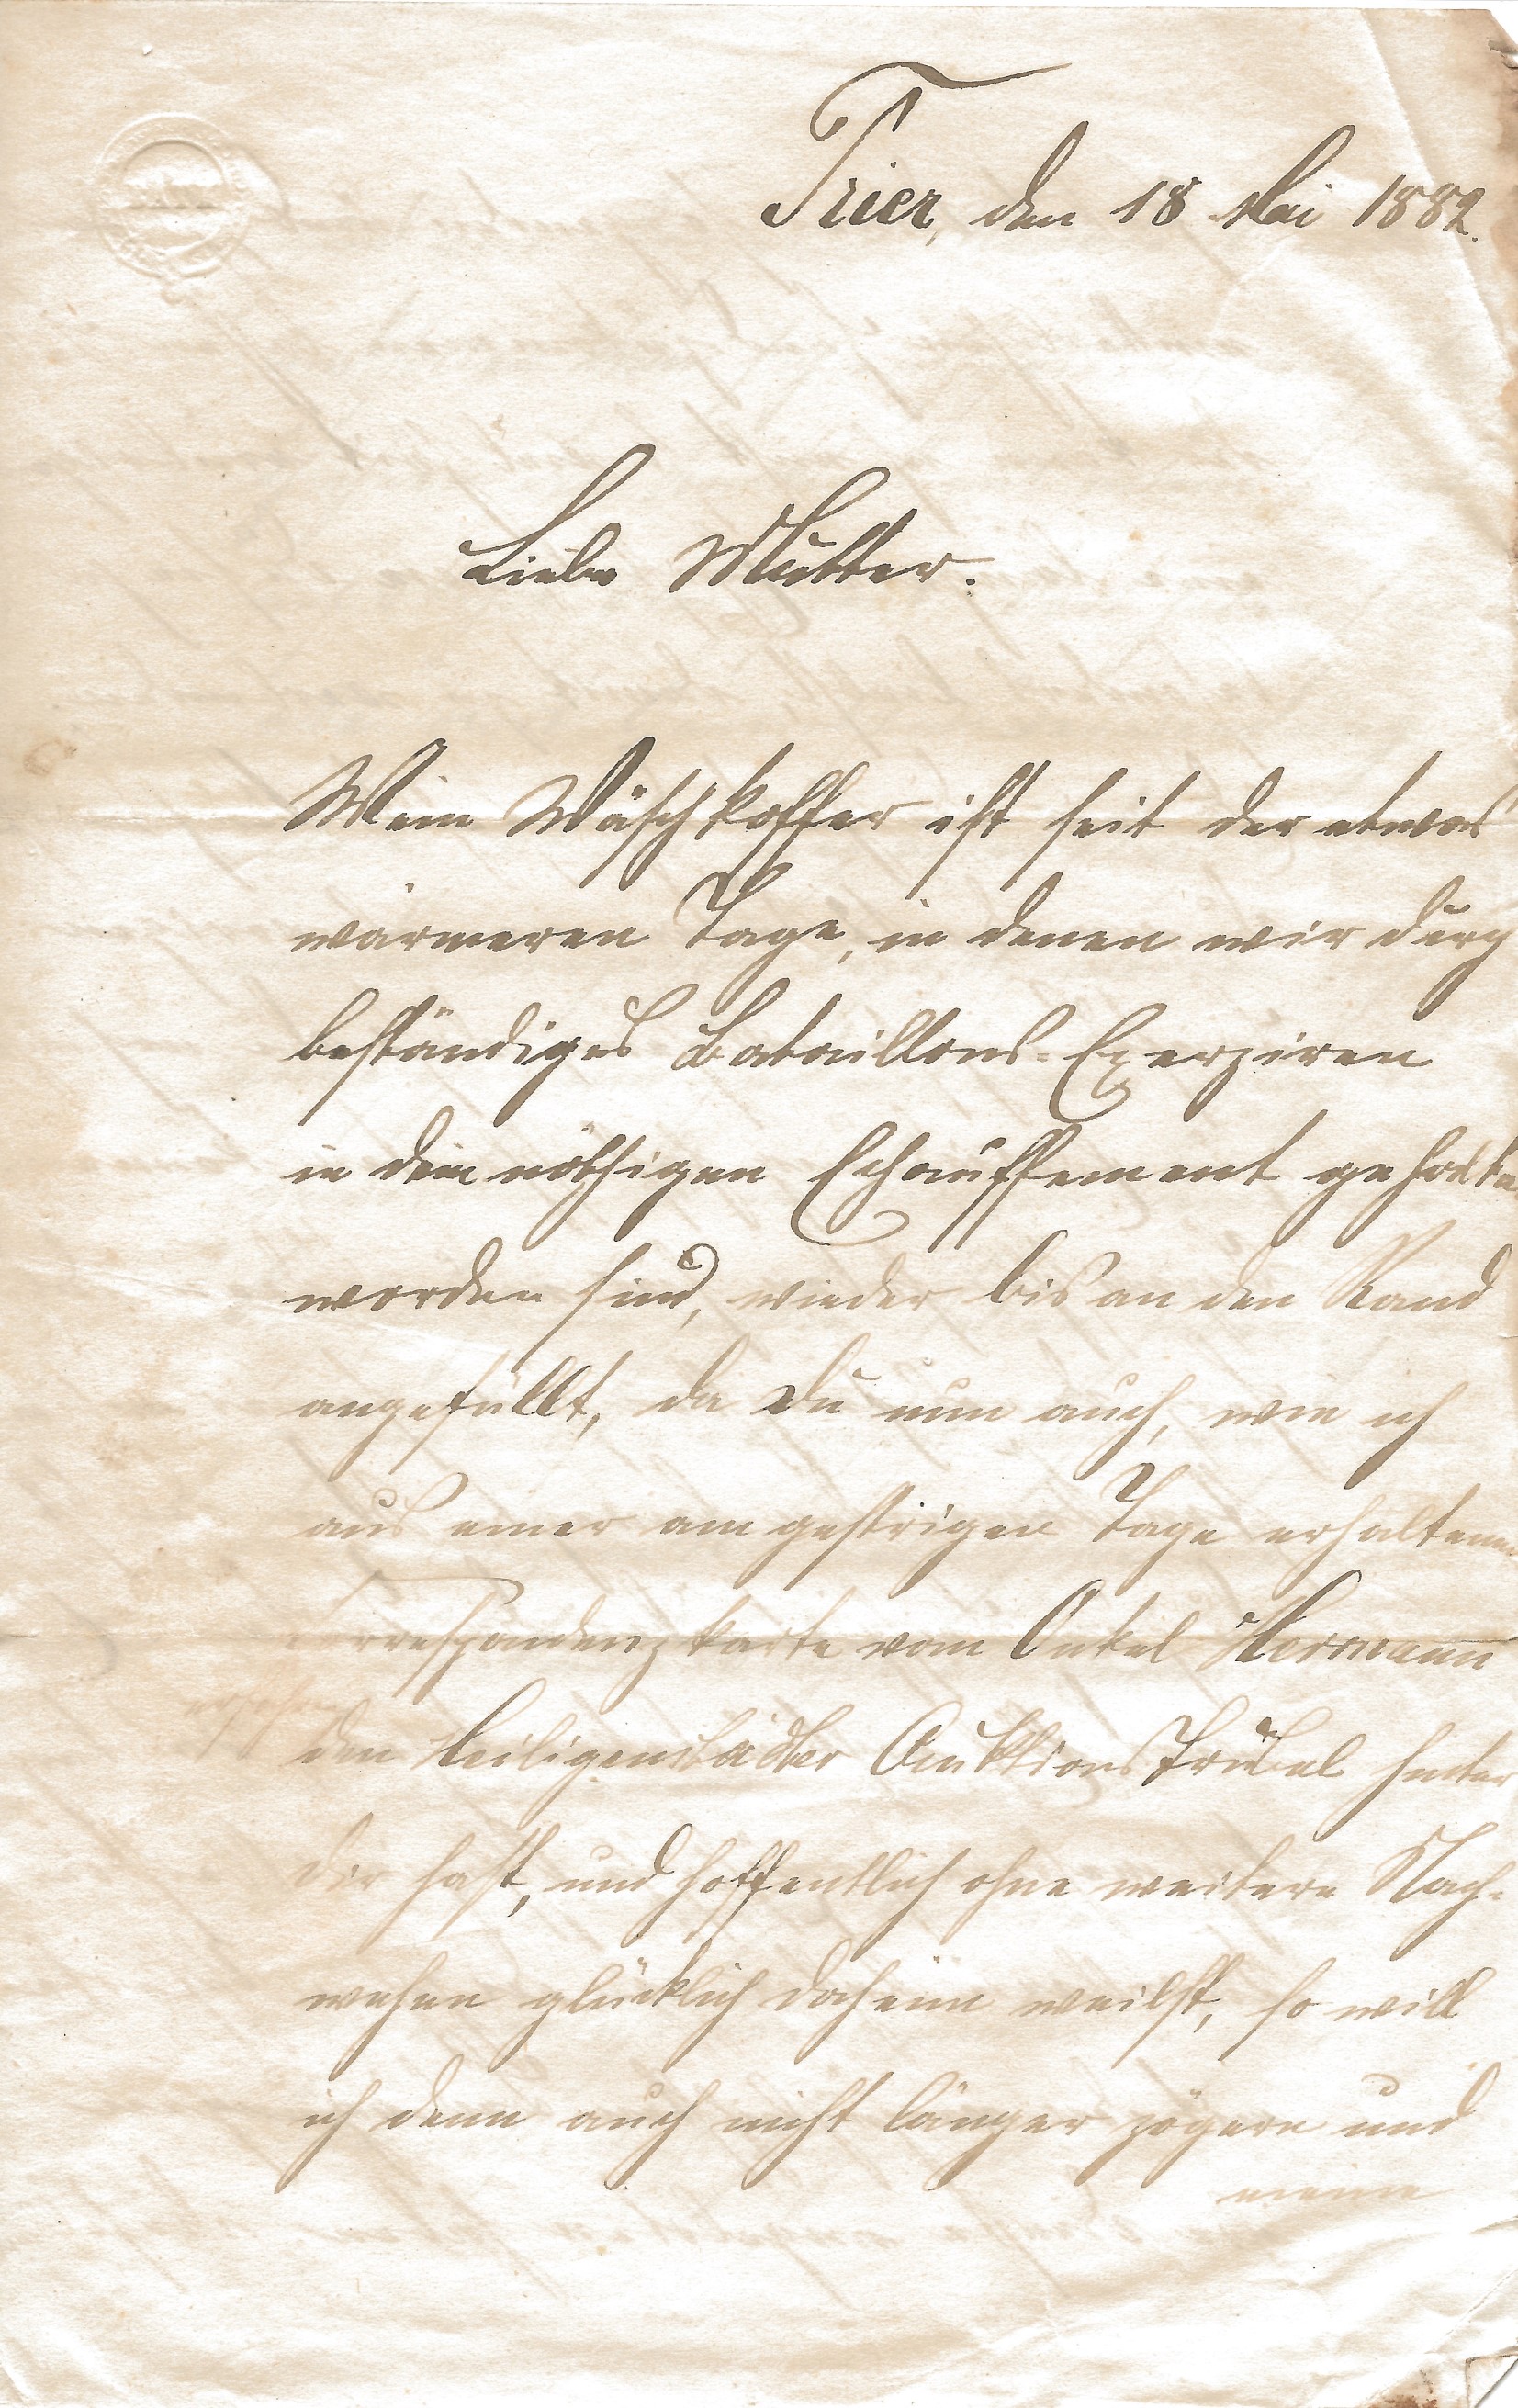 Trier, den 18 Mai 1882.
Liebe Mutter.
Mein Wäschkoffer ist seit der etwas
wärmeren Tage, in denen wir durch
beständiges Bataillons-Exerziren
in dem nöthigen Echauffement gehalten
worden sind, wieder bis an den Rand
angefüllt, da Du nun auch, wie ich
aus einer am gestrigen Tage erhaltenen
Correspondenzkarte vom Onkel Hermann
ersehen
den Heiligenstädter Auktionstrubel hinter
Dir hast, und hoffentlich ohne weitere Nach-
wehen glücklich daheim weilst, so will
ich denn auch nicht länger zögern und
meine